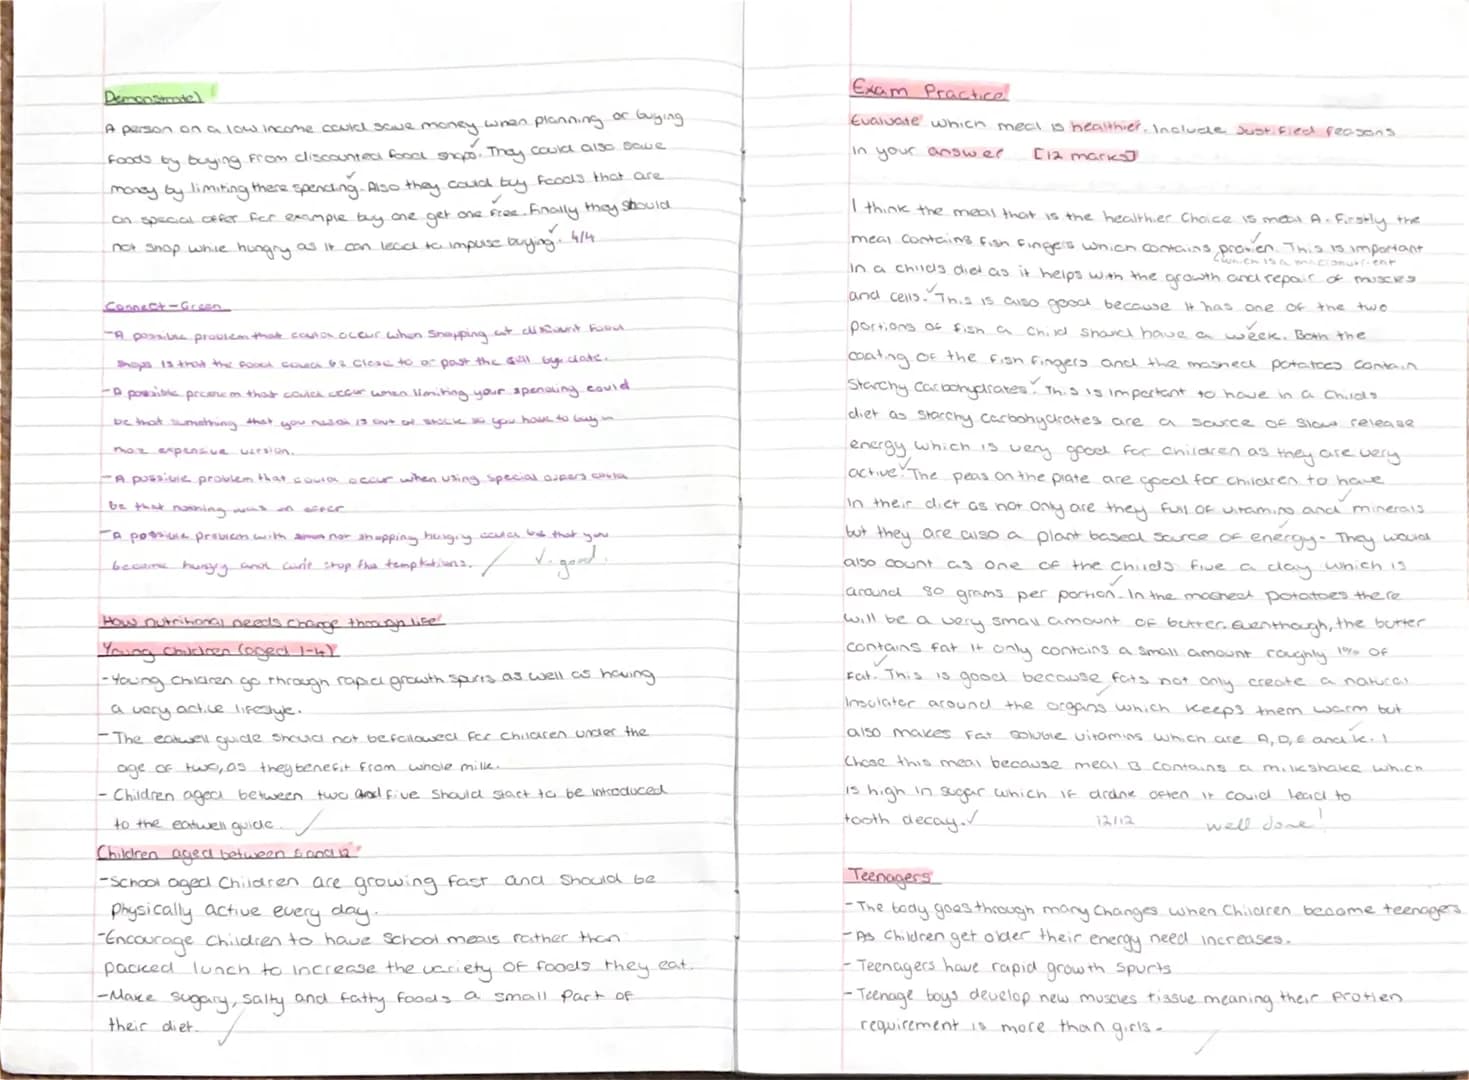 Demonstrate!
A person on a low income could save money when planning or buying
foods by buying from discounted food shops. They could also save
money by limiting there spending. Also they could buy foods that are
on special offer for example buy one get one free. Finally they should
not shop while hungry as it can lead to impulse buying. 4/4
Connect-Green
-A possible problem that could occur when shopping at discount food
shops is that the food could be close to or past the sell by date.
-A possible problem that could occur when limiting your spending could
be that something that you need is out of stock so you have to buy
more expensive version.
-A possible problem that could occur when using special offers could
be that nothing was on offer
-A possible problem with not shopping hungry could be that you
become hungry and can't stop the temptations. V. good.
How nutritional needs change through life
Young Children (aged 1-4)
-Young children go through rapid growth spurts as well as having
a very active lifestyle.
-The eatwell guide should not be followed for children under the
age of two, as they benefit from whole milk.
- Children aged between two and five should start to be introduced
to the eatwell guide.
Children aged between 5 and 12
-School aged Children are growing fast and should be
Physically active every day.
-Encourage Children to have School meals rather than
packed lunch to increase the variety of foods they eat.
-Make sugary, salty and fatty foods a small part of
their diet.
Exam Practice
Evaluate which meal is healthier. Include Justified reasons
in your answer [12 marks]
I think the meal that is the healthier choice is meal A. Firstly the
meal contains fish fingers which contains protien. This is important
(which is a macronutrient
in a childs diet as it helps with the growth and repair of muscles
and cells. This is also good because it has one of the two
portions of fish a child should have a week. Both the
coating of the fish fingers and the mashed potatoes contain
Starchy Carbohydrates. This is important to have in a Childs
diet as starchy carbohydrates are a source of slow release
energy which is very good for children as they are very
active. The peas on the plate are good for children to have
in their diet as not only are they full of vitamins and minerals
but they are also a plant based source of energy. They would
also count as one of the childs five a day which is
around 80 grams per portion. In the mashed potatoes there
will be a very small amount of butter. Eventhough, the butter
contains fat it only contains a small amount roughly 1% of
fat. This is good because fats not only create a natural
insulater around the organs which keeps them warm but
also makes fat soluble vitamins which are A, D, E and K. I
Chose this meal because meal B contains a milkshake which
is high in sugar which if drank often it could lead to
tooth decay. 12/12 well done!
Teenagers
-The body goes through many Changes when Children become teenagers
-As Children get older their energy need increases.
- Teenagers have rapid growth spurts
- Teenage boys develop new muscles tissue meaning their protien
requirement is more than girls.